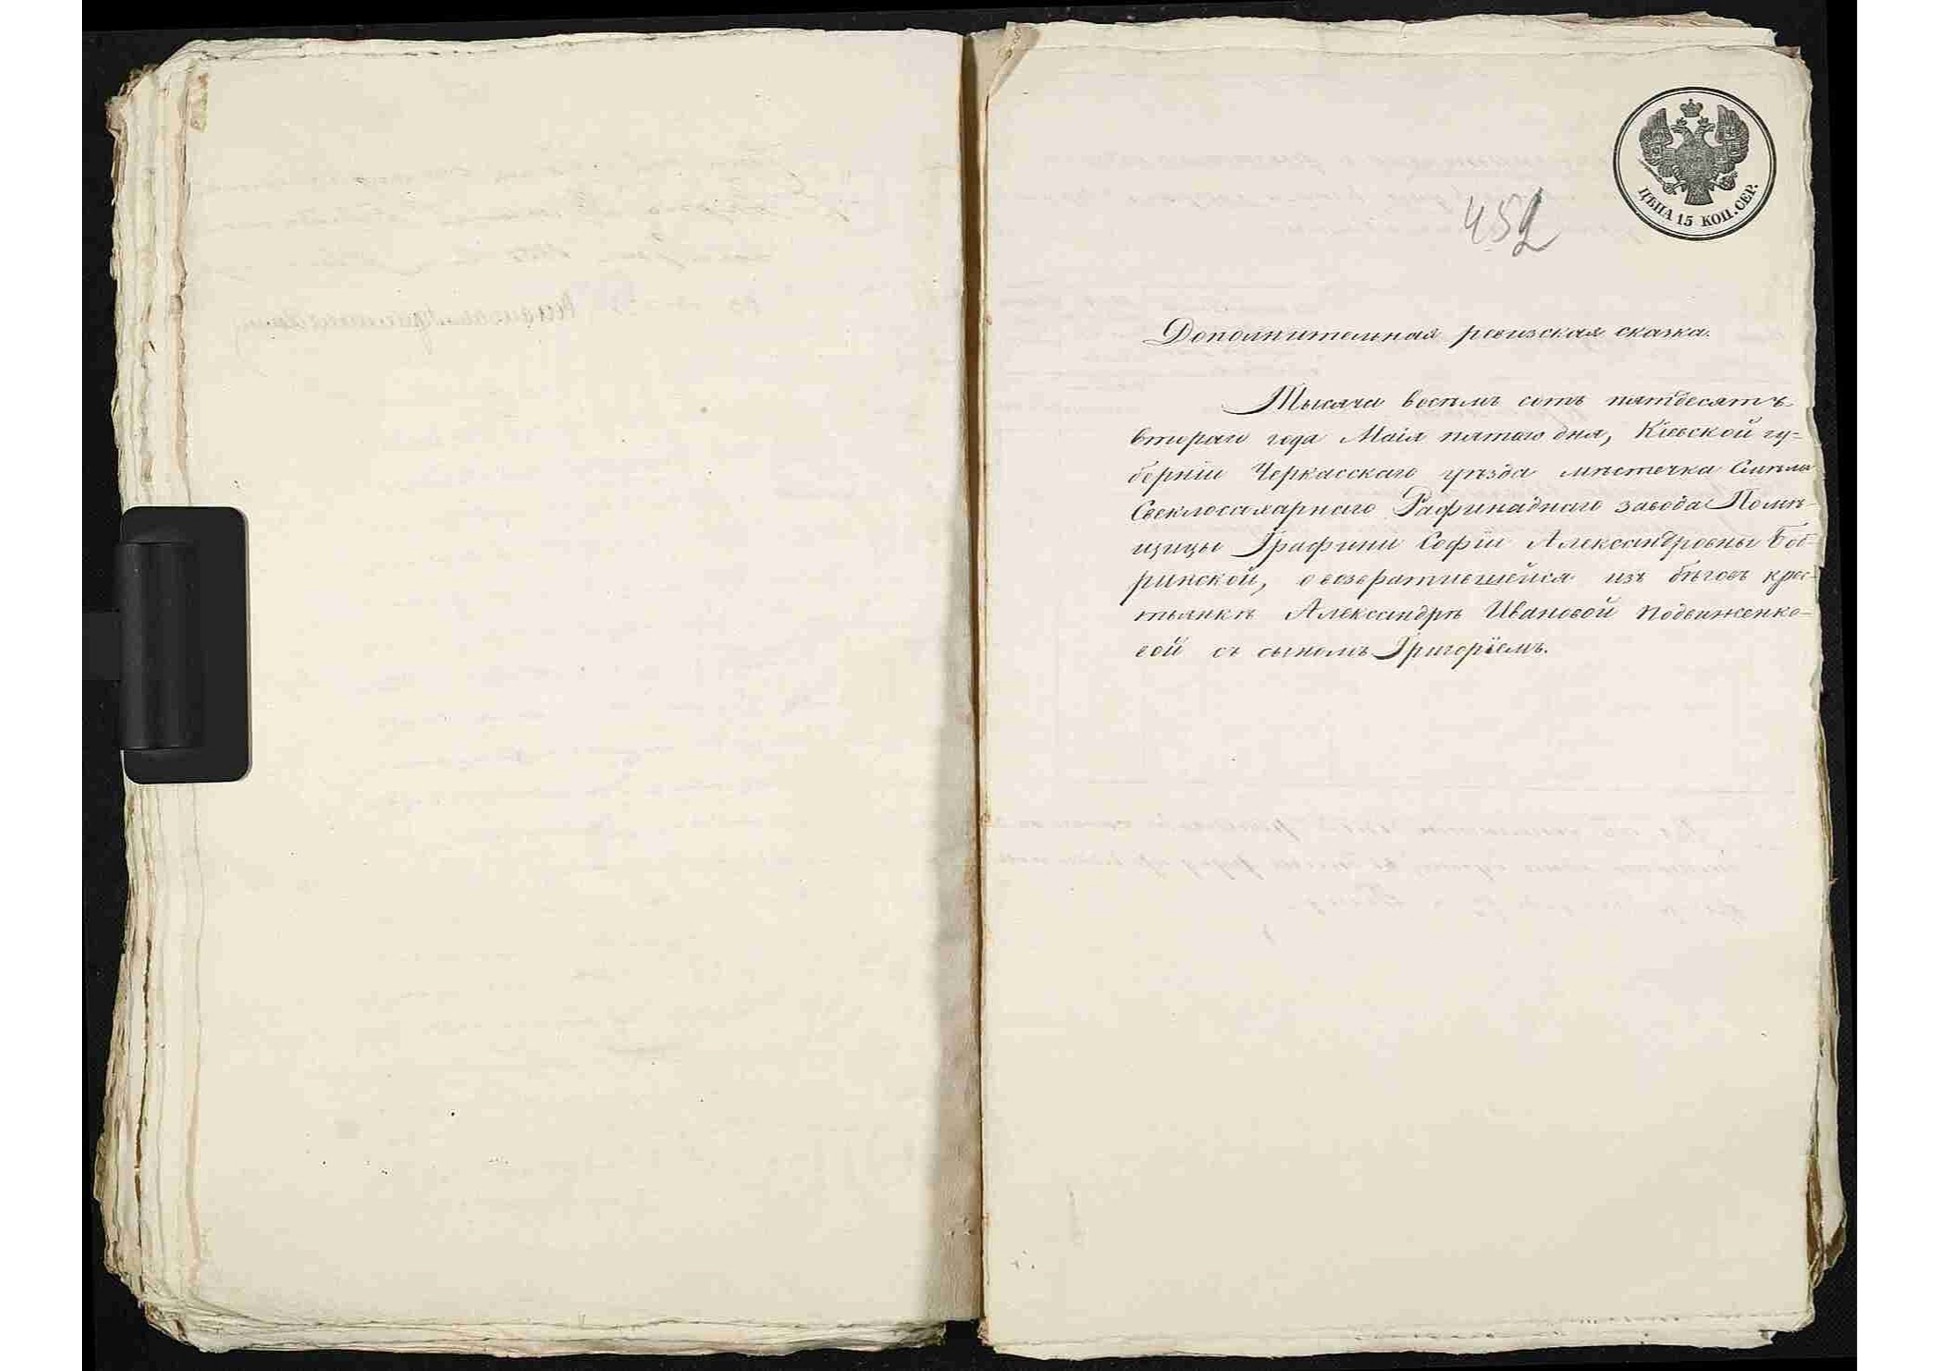 ЦѢНА 15 КОП. СЕР.
452
Дополнительная ревизская сказка.
Тысяча восемь сотъ пятдесятъ
втораго года Маія пятаго дня, Кіевской гу=
берніи Черкасскаго уѣзда мѣстечка Смѣлы
Свеклосахарнаго Рафинаднаго завода Помѣ-
щицы Графини Софіи Александровны Боб-
ринской, о возвратившейся изъ бѣговъ крес-
тьянкѣ Александрѣ Ивановой Подвиженко-
вой съ сыномъ Григоріемъ.